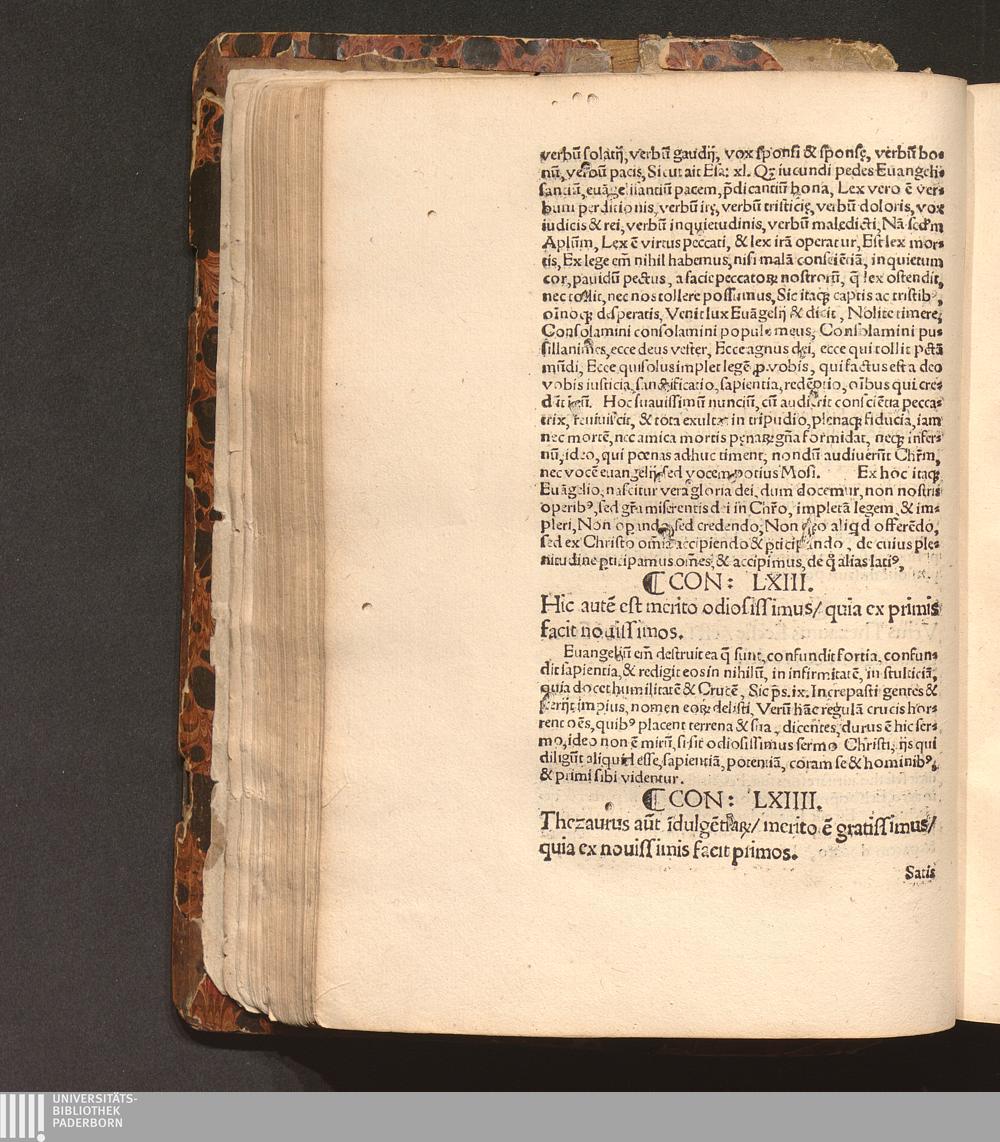 verbū solatij, verbū gaudij, vox sponsi & sponsę, verbū bo⸗
nū, verbū pacis, Sicut ait Esa: xl. Qꝫ iucundi pedes Euangeli⸗
santiū, euāgelisantiū pacem, p̄dicantiū bona, Lex vero ē ver⸗
bum perditionis, verbū irę, verbū tristicię, verbū doloris, vox
iudicis & rei, verbū inquietudinis, verbū maledicti, Nā scd̓m
Aplūm, Lex ē virtus peccati, & lex irā operatur, Est lex mor⸗
tis, Ex lege em̄ nihil habemus, nisi malā consciētiā, inquietum
cor, pauidū pectus, a facie peccatoꝝ nostrorū, q̄ lex ostendit,
nec tollit, nec nos tollere possumus, Sic itaqꝫ captis ac tristibꝰ,
oīnoqꝫ desperatis, Venit lux Euāgelij & dicit, Nolite timere,
Consolamini consolamini popule meus, Consolamini pu⸗
sillanimes, ecce deus vester, Ecce agnus dei, ecce qui tollit pctā
mūdi, Ecce qui solus implet legē ꝓ vobis, qui factus est a deo
vobis iusticia, sanctificatio, sapientia, redēptio, oībus qui cre⸗
dūt in eū. Hoc suauissimū nunciū, cū audierit conscientia pecca⸗
trix, reuiuiscit, & tota exultat in tripudio, plenaqꝫ fiducia, iam
nec mortē, nec amica mortis penaꝝ gn̄a formidat, neqꝫ infer⸗
nū, ideo, qui poenas adhuc timent, nondū audiuerūt Chr̄m,
nec vocē euangelij, sed vocem potius Mosi. Ex hoc itaqꝫ
Euāgelio, nascitur vera gloria dei, dum docemur, non nostris
operibꝰ, sed gr̄a miserentis dei in Chr̄o, impletā legem, & im⸗
pleri, Non operando, sed credendo, Non deo aliqd offerēdo,
sed ex Christo omīa accipiendo & pticipando, de cuius ple⸗
nitudine pticipamus omēs, & accipimus, de q̄ alias latiꝰ,
¶ CON: LXIII.
Hic autē est merito odiosissimus/ quia ex primis
facit nouissimos.
Euangeliū em̄ destruit ea q̄ sunt, confundit fortia, confun⸗
dit sapientia, & redigit eos in nihilū, in infirmitatē, in stulticiā,
quia docet humilitatē & Crucē, Sic p̄s. ix. Increpasti gentes &
perijt impius, nomen eoꝝ delesti, Verū hāc regulā crucis hor⸗
rent oēs, quibꝰ placent terrena & sua, dicentes, durus ē hic ser⸗
mo, ideo non ē mirū, si sit odiosissimus sermo Christi, ijs qui
diligūt aliquid esse, sapientiā, potentiā, coram se & hominibꝰ,
& primi sibi videntur.
¶ CON: LXIIII.
Thezaurus aūt īdulgētiaꝝ/ merito ē gratissimus/
quia ex nouissimis facit primos.
Satis
UNIVERSITÄTS-
BIBLIOTHEK
PADERBORN